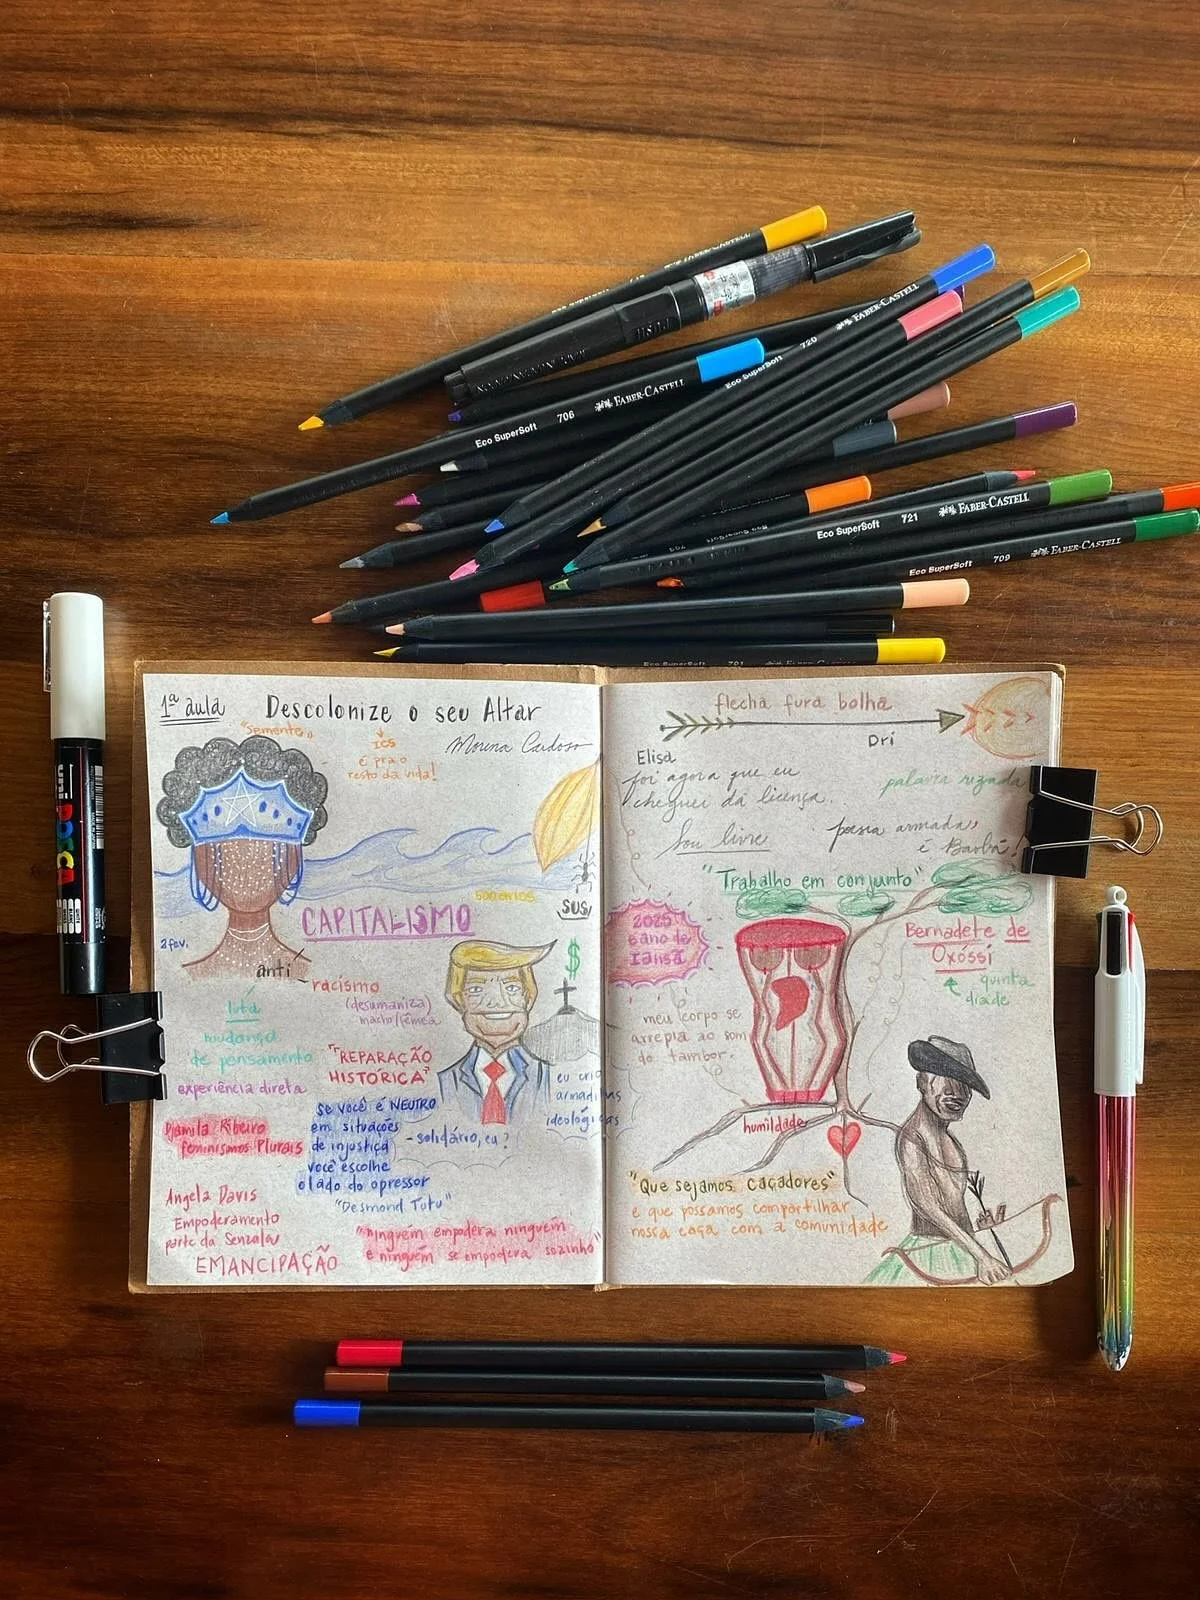 FABER-CASTELL
Eco SuperSoft 720
Eco SuperSoft 706 FABER-CASTELL
Eco SuperSoft 721 FABER-CASTELL
Eco SuperSoft 709 FABER-CASTELL
uni POSCA
1ª aula
Descolonize o seu Altar
"Semente"
ICS
é pra o
resto da vida!
Morena Cardoso
500 anos
SUS
CAPITALISMO
2 fev.
anti
racismo
(desumaniza)
macho/fêmea
$
luta
mudança
de pensamento
experiência direta
"REPARAÇÃO
HISTÓRICA"
Djamila Ribeiro
feminismos Plurais
SE VOCÊ É NEUTRO
em situações
de injustiça
você escolhe
o lado do opressor
"Desmond Tutu"
- solidário, eu?
eu crio
armadilhas
ideológicas
Angela Davis
Empoderamento
parte da Senzala
EMANCIPAÇÃO
"ninguém empodera ninguém
e ninguém se empodera sozinho"
flecha fura bolha
Dri
Elisa
foi agora que eu
cheguei dá licença.
Sou livre
palavra rezada
poesia armada,
é Baobá!
"Trabalho em conjunto"
2025
é ano de
Iansã
Bernadete de
Oxóssi
quinta
díade
meu corpo se
arrepia ao som
do tambor.
humildade
"Que sejamos caçadores"
e que possamos compartilhar
nossa caça com a comunidade